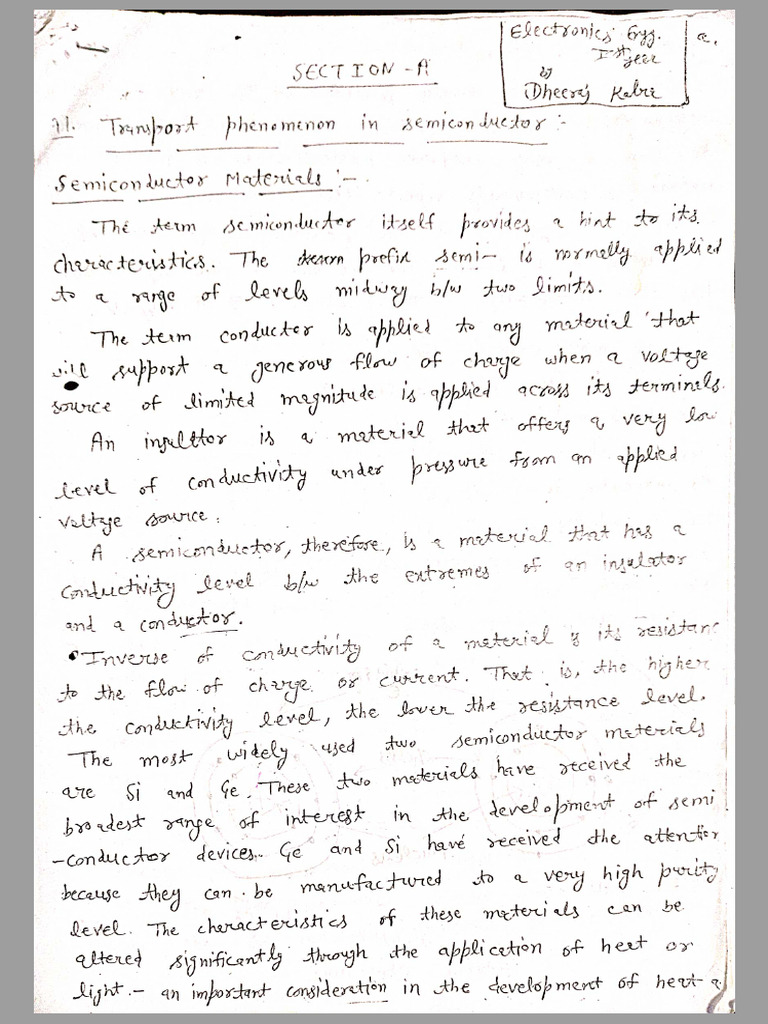 Electronics Engg.
Ist year
by
Dheeraj Kabre
a.
SECTION -A
11. Transport phenomenon in semiconductor :-
Semiconductor Materials :-
The term semiconductor itself provides a hint to its
characteristics. The prefix semi- is normally applied
to a range of levels midway b/w two limits.
The term conductor is applied to any material that
will support a generous flow of charge when a voltage
source of limited magnitude is applied across its terminals.
An insulttor is a material that offers a very low
level of conductivity under pressure from an applied
voltage source.
A semiconductor, therefore, is a material that has a
conductivity level b/w the extremes of an insulator
and a conductor.
• Inverse of conductivity of a material is its resistanc
to the flow of charge or current. That is, the higher
the conductivity level, the lower the resistance level.
The most widely used two semiconductor materials
are Si and Ge. These two materials have received the
broadest range of interest in the development of semi
-conductor devices. Ge and Si have received the attention
because they can be manufactured to a very high purity
level. The characteristics of these materials can be
altered significantly through the application of heat or
light. - an important consideration in the development of heat a